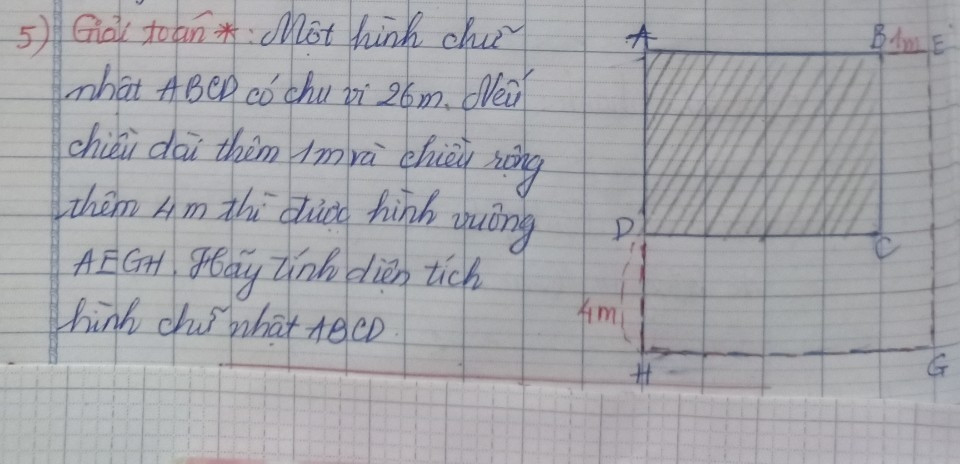 5) Giải toán *: Một hình chữ
nhật ABCD có chu vi 26m. Nếu
chiều dài thêm 1m và chiều rộng
thêm 4m thì được hình vuông
AEGH. Hãy tính diện tích
hình chữ nhật ABCD.
A B 1m E
D C
4m
H G